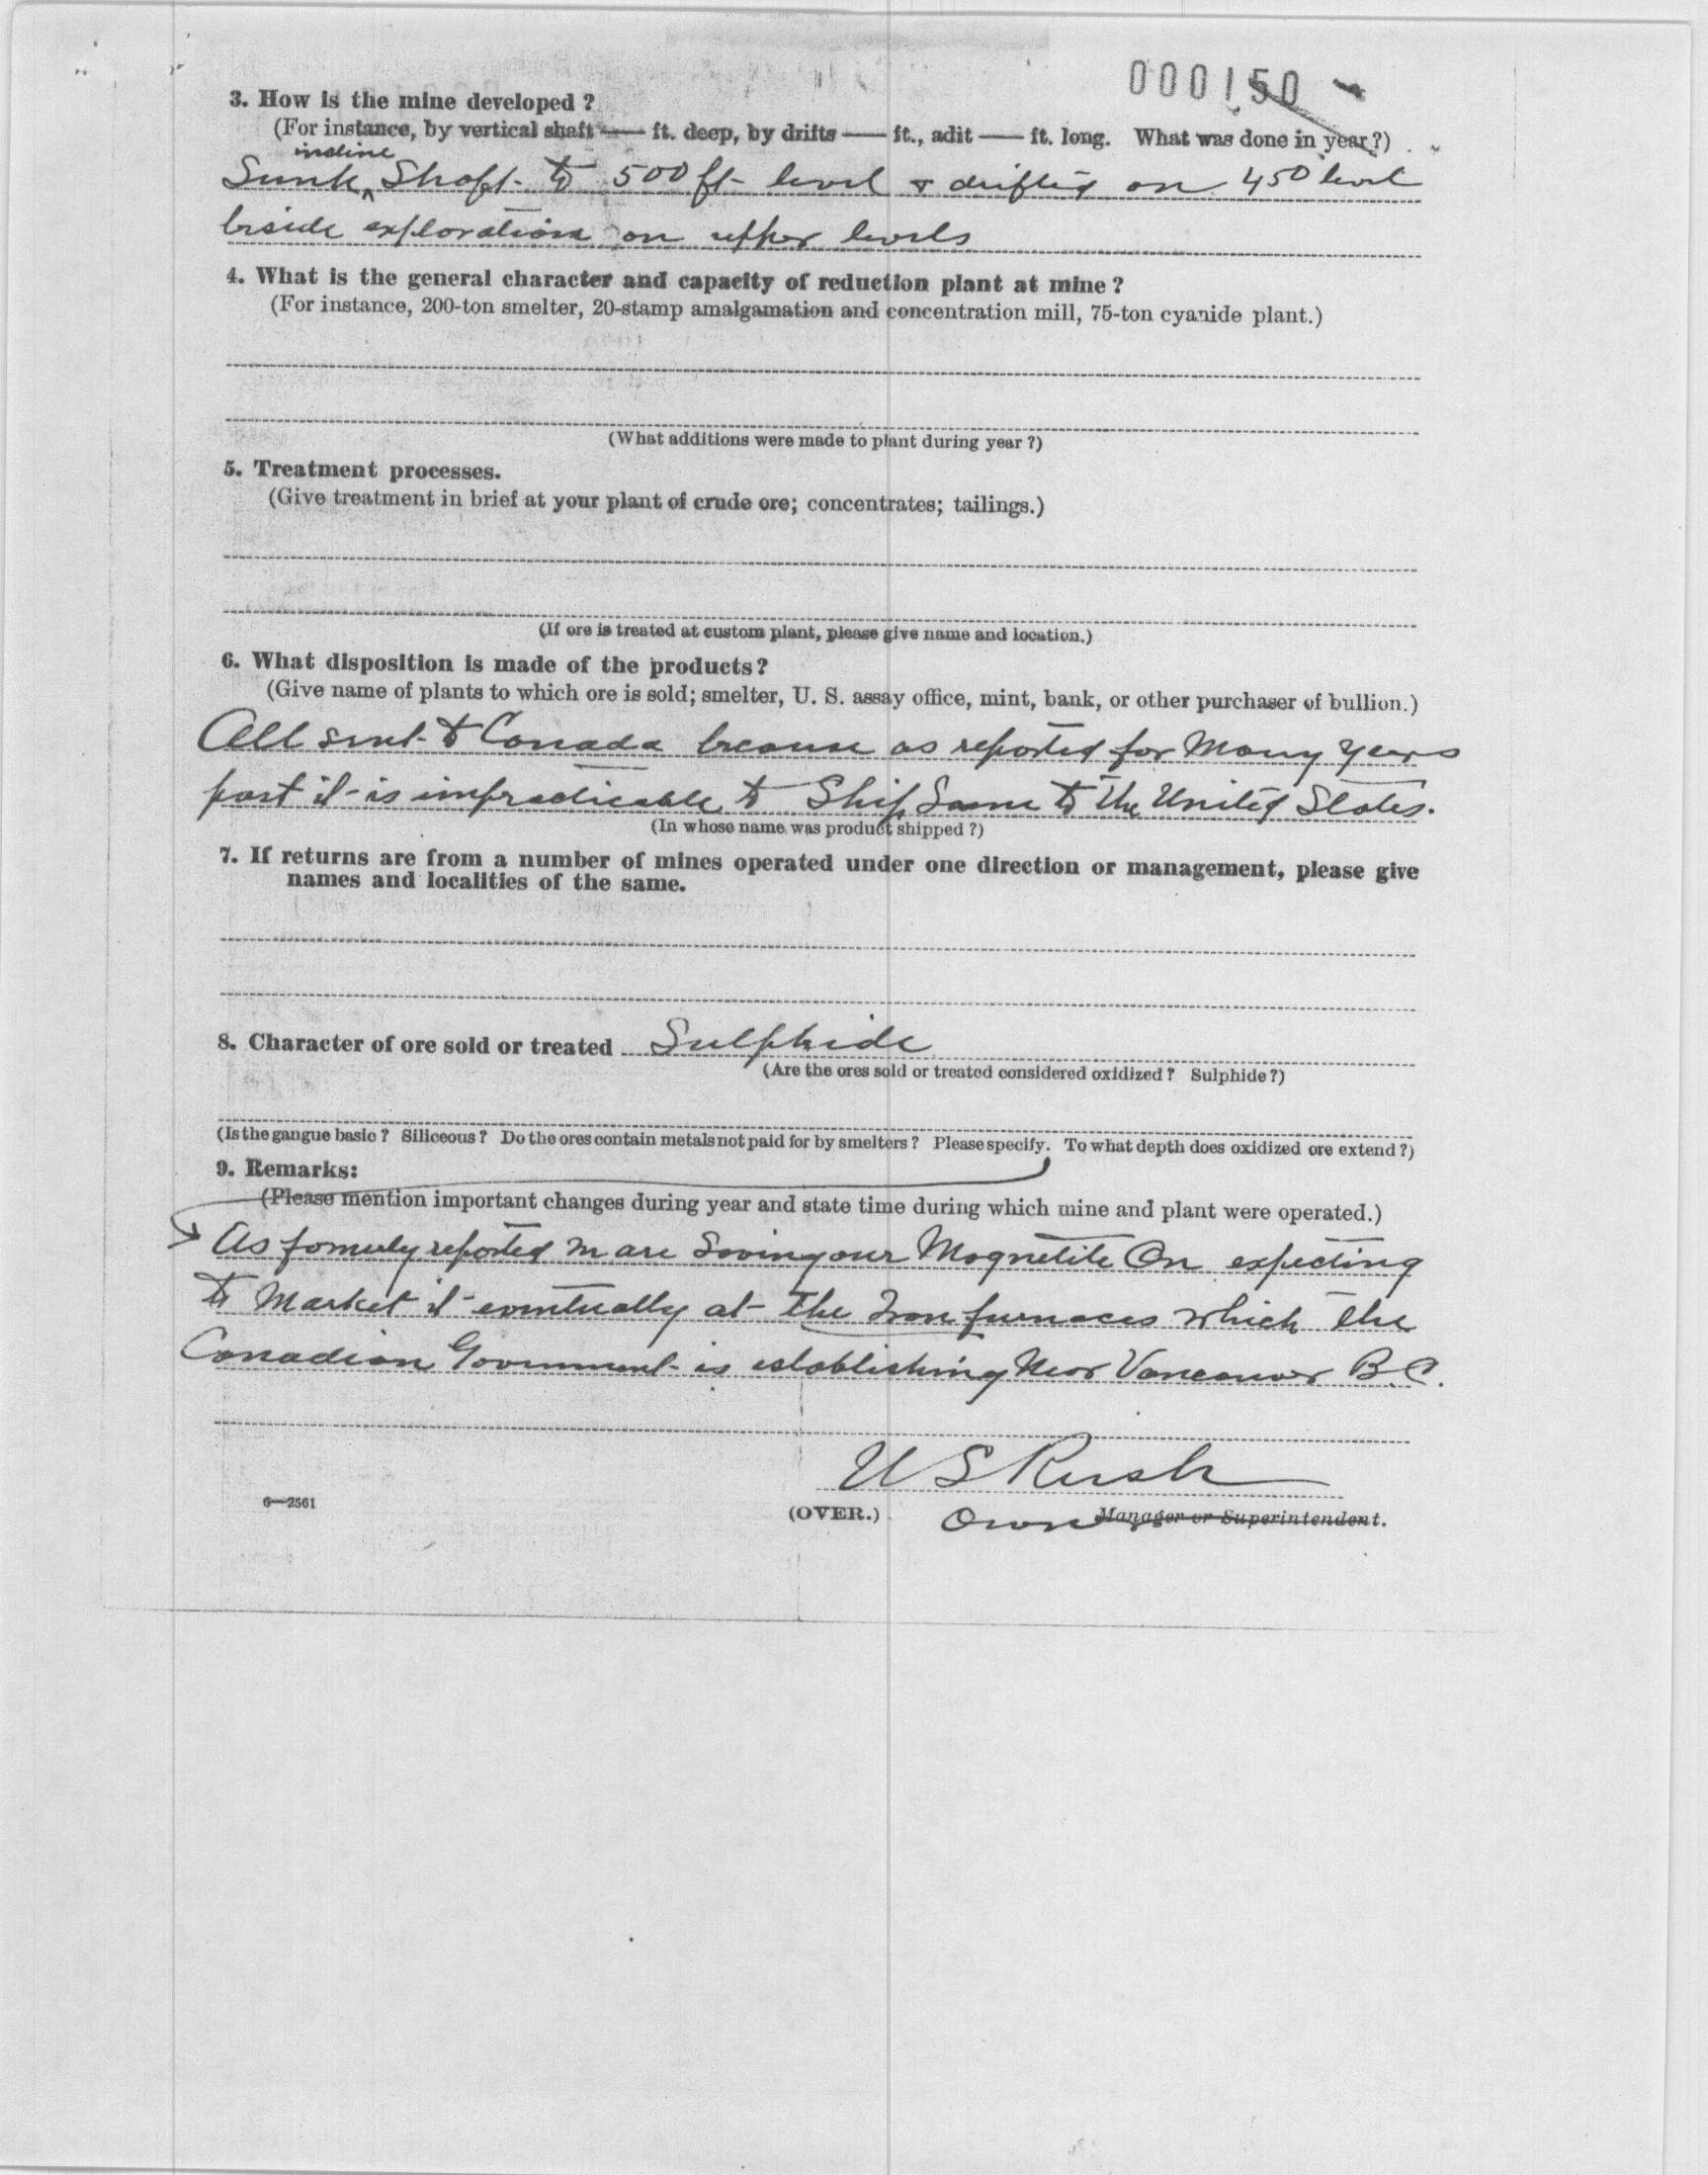 000150
3. How is the mine developed?
(For instance, by vertical shaft — ft. deep, by drifts — ft., adit — ft. long. What was done in year?)
incline
Sunk ^ Shaft to 500 ft level & drifted on 450 level
beside explorations on upper levels
4. What is the general character and capacity of reduction plant at mine?
(For instance, 200-ton smelter, 20-stamp amalgamation and concentration mill, 75-ton cyanide plant.)
(What additions were made to plant during year?)
5. Treatment processes.
(Give treatment in brief at your plant of crude ore; concentrates; tailings.)
(If ore is treated at custom plant, please give name and location.)
6. What disposition is made of the products?
(Give name of plants to which ore is sold; smelter, U. S. assay office, mint, bank, or other purchaser of bullion.)
All sent to Canada because as reported for Many Years
past it is impracticable to Ship Same to the United States.
(In whose name was product shipped?)
7. If returns are from a number of mines operated under one direction or management, please give
names and localities of the same.
8. Character of ore sold or treated Sulphide
(Are the ores sold or treated considered oxidized? Sulphide?)
(Is the gangue basic? Siliceous? Do the ores contain metals not paid for by smelters? Please specify. To what depth does oxidized ore extend?)
9. Remarks:
(Please mention important changes during year and state time during which mine and plant were operated.)
As formerly reported we are Saving our Magnetite Ore expecting
to Market it eventually at the Iron furnaces which the
Canadian Government is establishing Near Vancouver B.C.
U S Rush
6—2561
(OVER.)
Owner Manager or Superintendent.